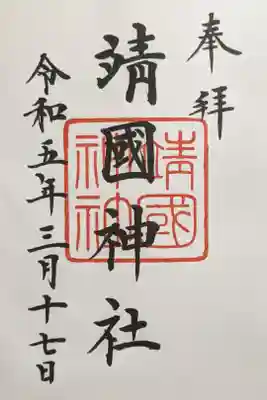 奉拝
靖國神社
靖國神社
令和五年三月十七日